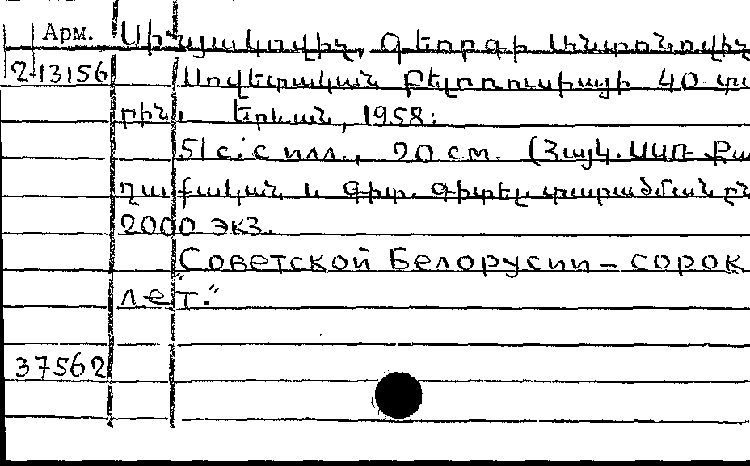 Арм. Սինյակովիչ, Գեորգի Անտոնովիչ
2-13156 Սովետական Բելոռուսիայի 40 տա
րին. Երևան, 1958:
51 с. с илл., 20 см. (Հայկ. ՍՍՌ Քա
ղաքական և Գիտ. Գիտել. տարածման ըն
2000 экз.
"Советской Белорусии – сорок
лет."
37562